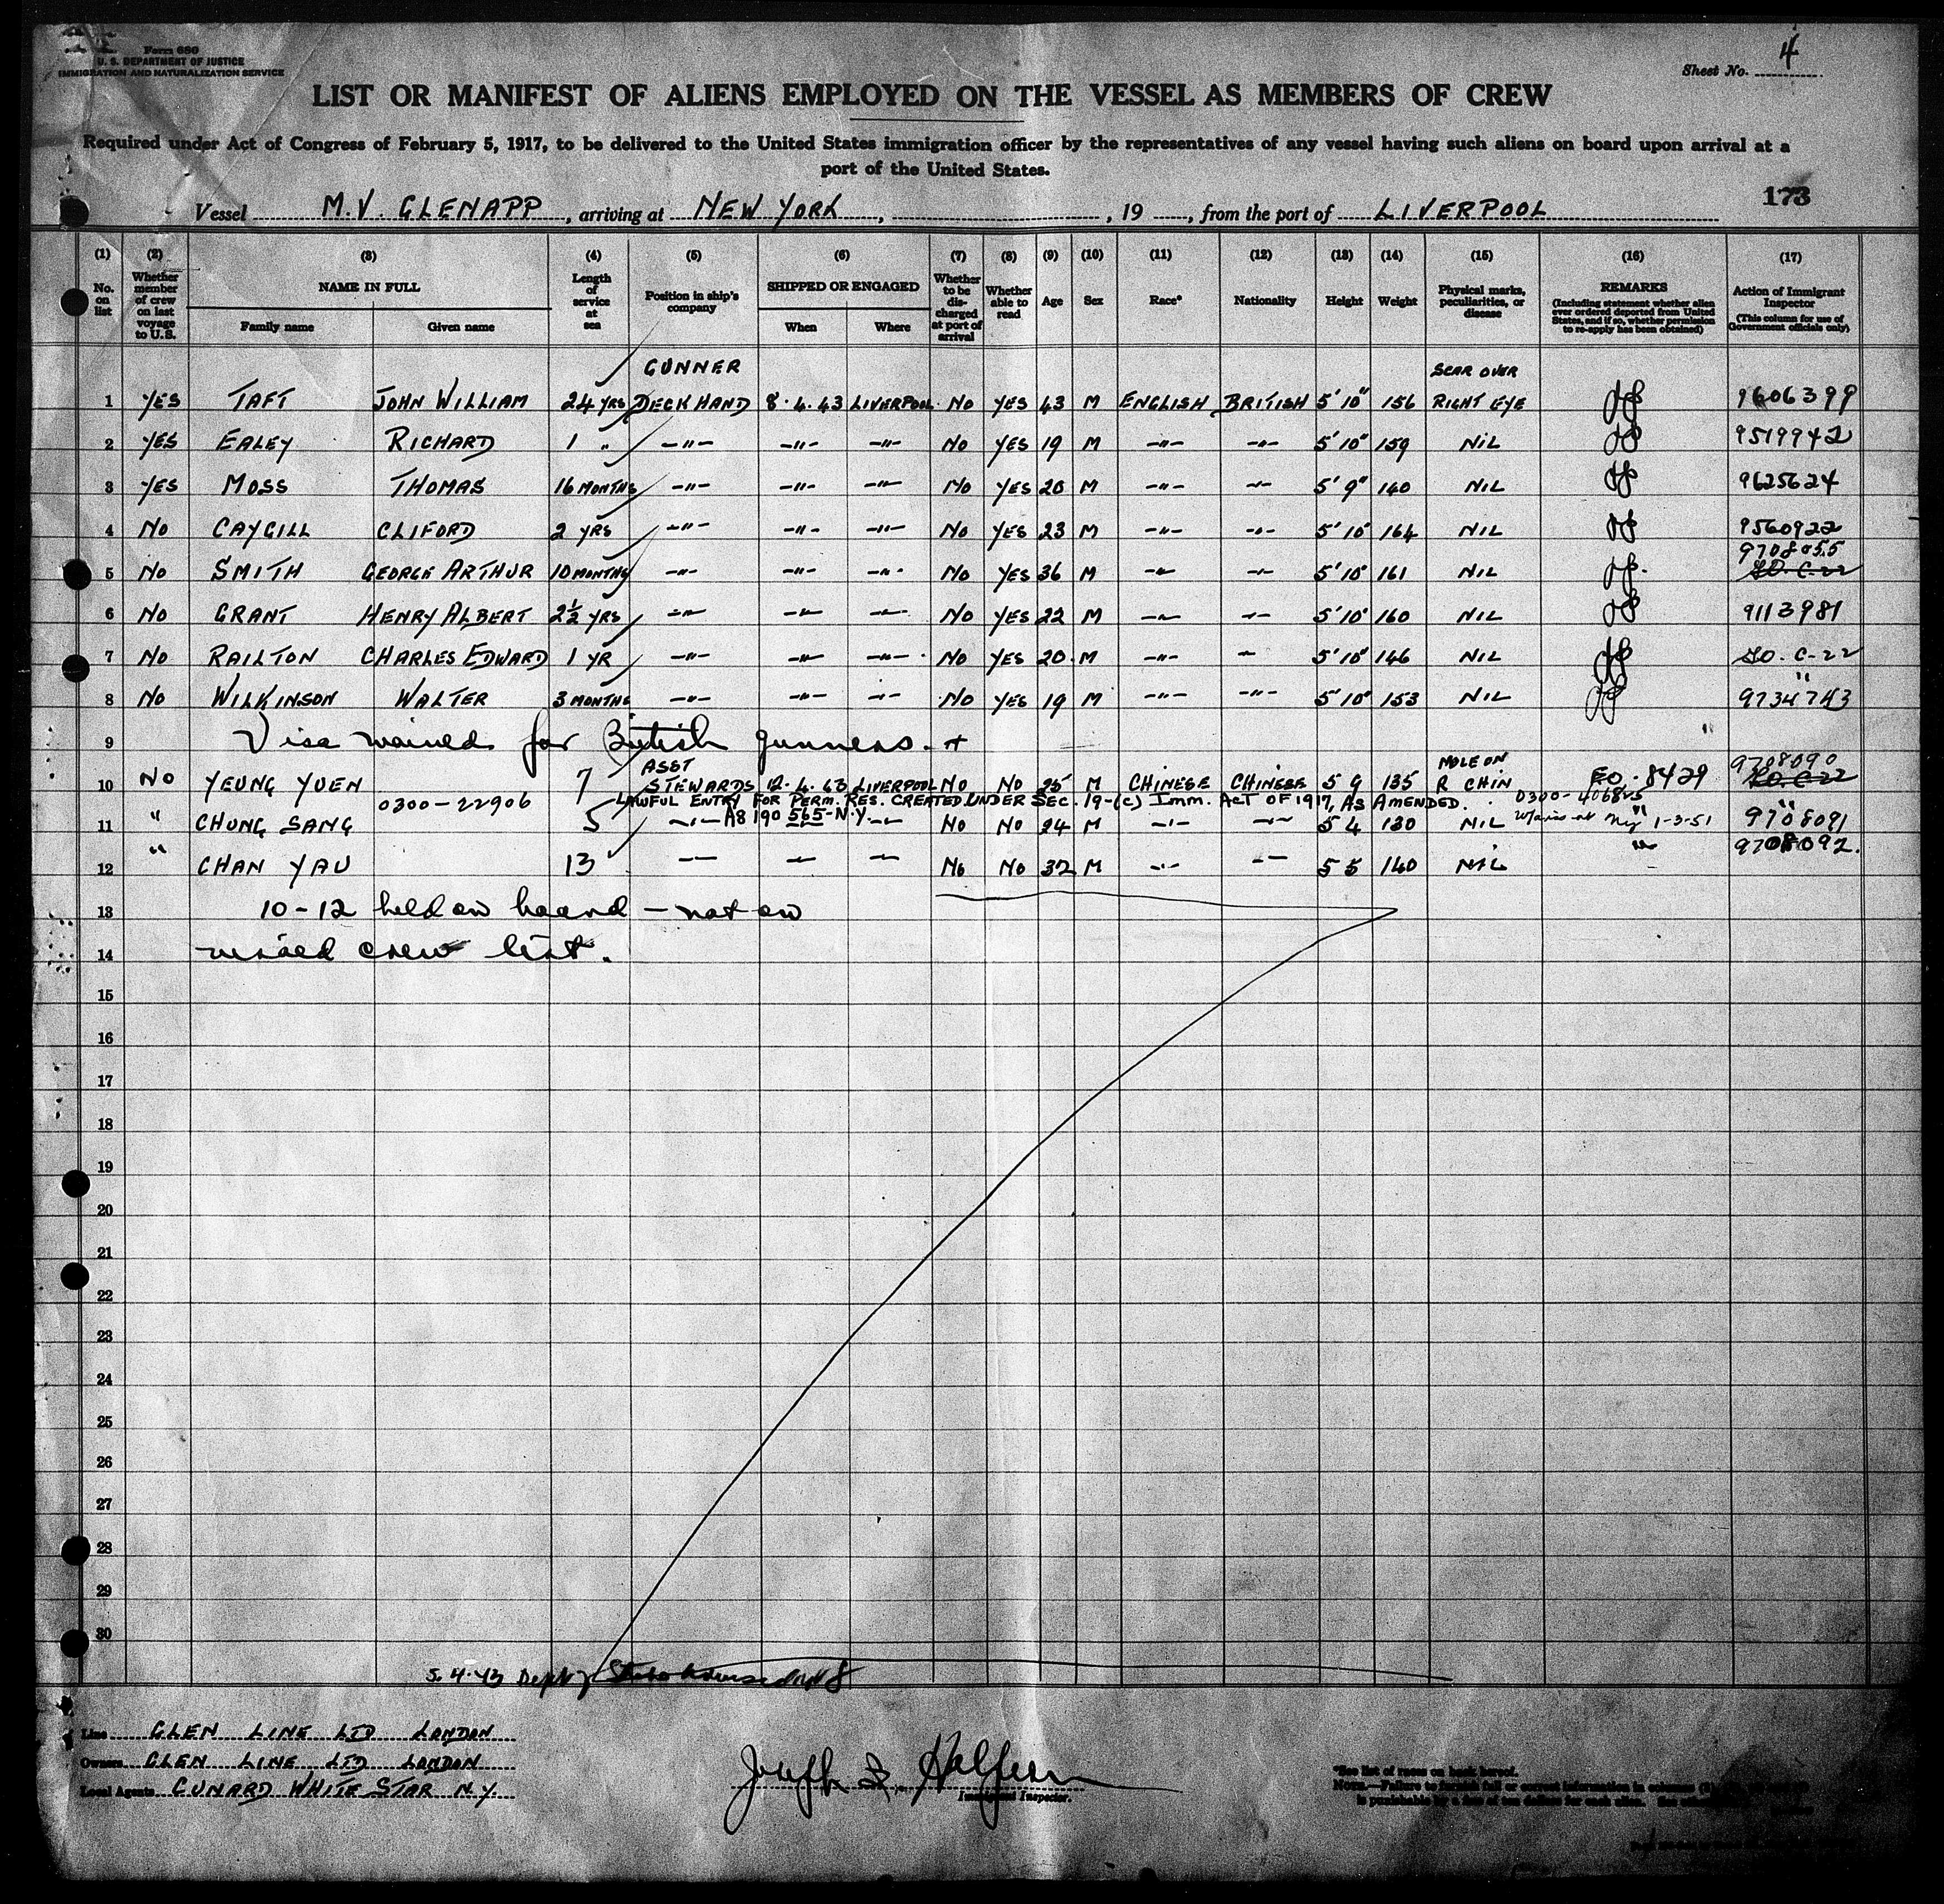 Form 680
U. S. DEPARTMENT OF JUSTICE
IMMIGRATION AND NATURALIZATION SERVICE
Sheet No. 4
LIST OR MANIFEST OF ALIENS EMPLOYED ON THE VESSEL AS MEMBERS OF CREW
Required under Act of Congress of February 5, 1917, to be delivered to the United States immigration officer by the representatives of any vessel having such aliens on board upon arrival at a
port of the United States.
173
Vessel M.V. GLENAPP, arriving at NEW YORK, , 19 , from the port of LIVERPOOL
(1) (2) (3) (4) (5) (6) (7) (8) (9) (10) (11) (12) (13) (14) (15) (16) (17)
No. on list
Whether member of crew on last voyage to U.S.
NAME IN FULL
Family name
Given name
Length of service at sea
Position in ship's company
SHIPPED OR ENGAGED
When
Where
Whether to be discharged at port of arrival
Whether able to read
Age
Sex
Race*
Nationality
Height
Weight
Physical marks, peculiarities, or disease
REMARKS
(Including statement whether alien ever ordered deported from United States, and if so, whether permission to re-apply has been obtained)
Action of Immigrant Inspector
(This column for use of Government officials only)
GUNNER SCAR OVER
1 YES TAFT JOHN WILLIAM 24 YRS DECK HAND 8.4.43 LIVERPOOL NO YES 43 M ENGLISH BRITISH 5'10" 156 RIGHT EYE 9606399
2 YES EALEY RICHARD 1 " -"- -"- -"- NO YES 19 M -"- -"- 5'10" 159 NIL 9519942
3 YES MOSS THOMAS 16 MONTHS -"- -"- -"- NO YES 20 M -"- -"- 5'9" 140 NIL 9625624
4 NO CAYGILL CLIFORD 2 YRS -"- -"- -"- NO YES 23 M -"- -"- 5'10" 164 NIL 9560922
9708055
5 NO SMITH GEORGE ARTHUR 10 MONTHS -"- -"- -"- NO YES 36 M -"- -"- 5'10" 161 NIL
6 NO GRANT HENRY ALBERT 2½ YRS -"- -"- -"- NO YES 22 M -"- -"- 5'10" 160 NIL 9113981
7 NO RAILTON CHARLES EDWARD 1 YR -"- -"- -"- NO YES 20 M -"- -"- 5'10" 146 NIL C-22
8 NO WILKINSON WALTER 3 MONTHS -"- -"- -"- NO YES 19 M -"- -"- 5'10" 153 NIL 9734743
9 Visa waived for British gunners.
ASST MOLE ON 9708090
10 NO YEUNG YUEN 7 STEWARDS 12.4.43 LIVERPOOL NO NO 25 M CHINESE CHINESE 5 9 135 R CHIN EO. 8429
0300-22906 LAWFUL ENTRY FOR PERM. RES. CREATED UNDER SEC. 19-(c) IMM. ACT OF 1917, AS AMENDED.
A8 190 565-N.Y.
11 " CHUNG SANG 5 -"- -"- NO NO 24 M -"- -"- 5 4 130 NIL 1-3-51 9708091
12 " CHAN YAU 13 -"- -"- -"- NO NO 32 M -"- -"- 5 5 140 NIL " 9708092.
13 10-12 held on board - not on
14 revised crew list.
15
16
17
18
19
20
21
22
23
24
25
26
27
28
29
30
5.4.43 Dept of State
Line GLEN LINE LTD LONDON
Owners GLEN LINE LTD LONDON
Local Agents CUNARD WHITE STAR N.Y.
Immigrant Inspector.
*See list of races on back hereof.
NOTE.—Failure to furnish full or correct information in columns
is punishable by a fine of ten dollars for each alien.